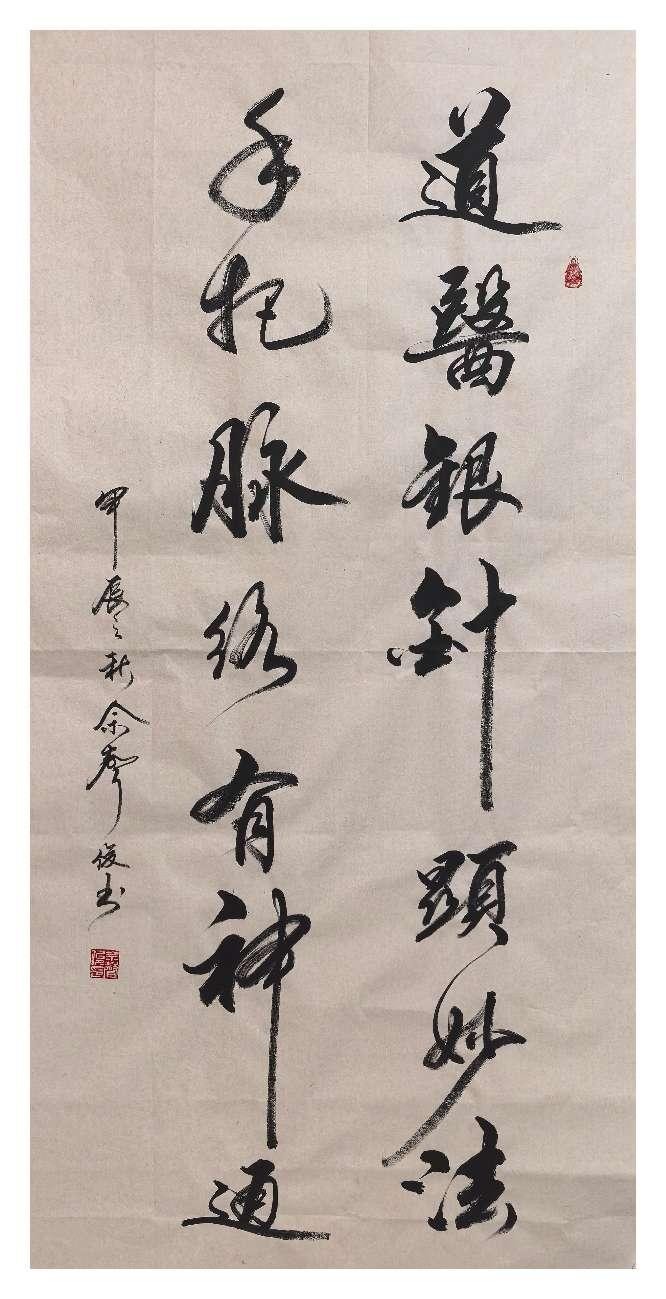 道醫銀針顯妙法
手把脉络有神通
甲辰之秋余聲俊书